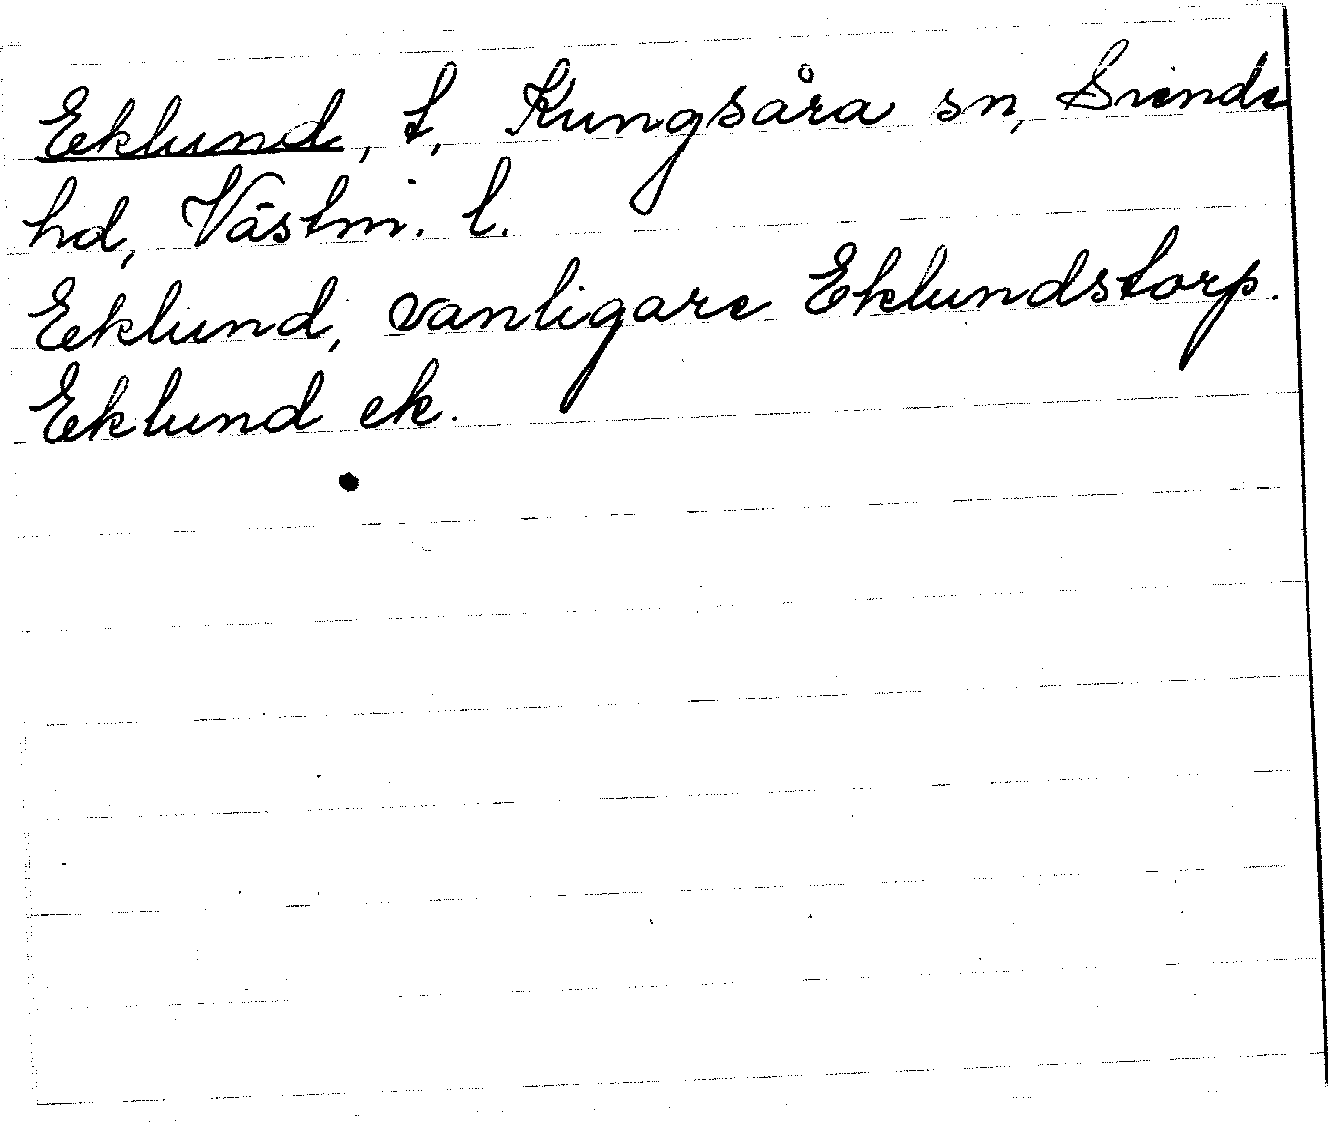 Eklund, t, Kungsåra sn, Siende
hd, Västm. l.
Eklund, vanligare Eklundstorp.
Eklund ek.